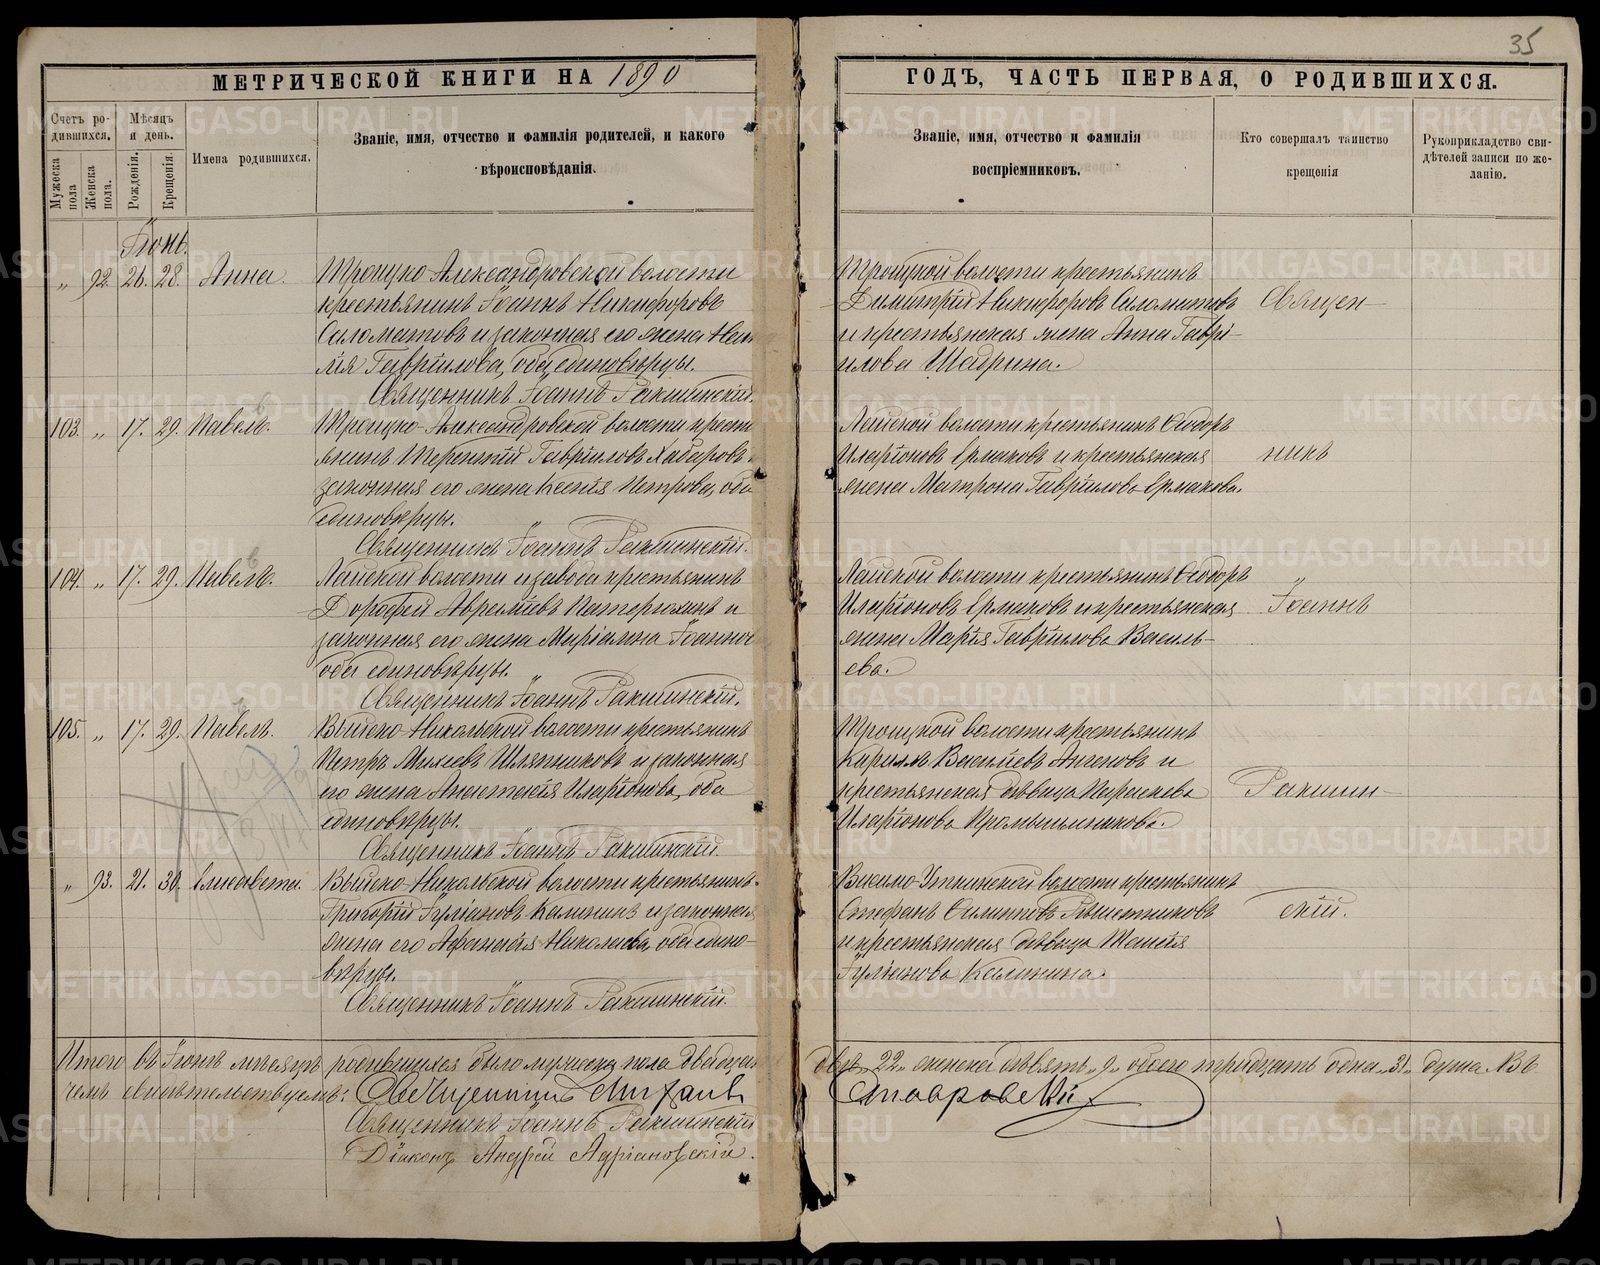 35
МЕТРИЧЕСКОЙ КНИГИ НА 1890
ГОДЪ, ЧАСТЬ ПЕРВАЯ, О РОДИВШИХСЯ.
Счетъ ро-
дившихся.
Мужеска
пола
Женска
пола.
Мѣсяцъ
и день.
Рожденія.
Крещенія.
Имена родившихся.
Званіе, имя, отчество и фамилія родителей, и какого
вѣроисповѣданія.
Званіе, имя, отчество и фамилія
воспріемниковъ.
Кто совершалъ таинство
крещенія
Рукоприкладство сви-
дѣтелей записи по же-
ланію.
Іюнь.
„ 92. 26. 28. Анна. Троицко-Александровской волости
крестьянинъ Іоаннъ Никифоровъ
Саломатовъ и законная его жена
Гавріилова, оба единовѣрцы.
Священникъ Іоаннъ Ракшинскій.
Троицкой волости крестьянинъ
Димитрій Никифоровъ Саломатовъ
и крестьянская жена Анна Гаврі-
илова Шадрина.
103. „ 17. 29. Павелъ. Троицко-Александровской волости крест
янинъ Терентій Гавріиловъ Хабаровъ
законная его жена Ксенія Петрова, оба
единовѣрцы.
Священникъ Іоаннъ Ракшинскій.
Лайской волости крестьянинъ Ѳеодоръ
Иларіоновъ Ермаковъ и крестьянская
жена Матрона Гавріилова Ермакова.
104. „ 17. 29. Павелъ. Лайской волости и завода крестьянинъ
Дорофей Авреліевъ Патерюхинъ и
законная его жена Маріамна Іоаннов
оба единовѣрцы.
Священникъ Іоаннъ Ракшинскій.
Лайской волости крестьянинъ Ѳеодоръ
Иларіоновъ Ермаковъ и крестьянская
жена Марія Гавріилова Василь-
ева.
105. „ 17. 29. Павелъ. Выйско-Никольской волости крестьянинъ
Петръ Михеевъ Шляпниковъ и законная
его жена Анастасія Иларіонова, оба
единовѣрцы.
Священникъ Іоаннъ Ракшинскій.
Троицкой волости крестьянинъ
Кириллъ Васильевъ и
крестьянская дѣвица Параскева
Иларіонова Промышленикова.
„ 93. 21. 30. Елисавета. Выйско-Никольской волости крестьянинъ
Григорій Іуліановъ Калининъ и законная
жена его Афанасія Николаева, оба едино-
вѣрцы.
Священникъ Іоаннъ Ракшинскій.
Висимо-Уткинской волости крестьянинъ
Стефанъ Рѣшетниковъ
и крестьянская дѣвица Таисія
Іуліанова Калинина.
Священ-
никъ
Іоаннъ
Ракшин-
скій.
Итого въ Іюнѣ мѣсяцѣ родившихся было мужеска пола двадцат
два „22„ женска девять „9„ обоего тридцать одна „31„ душа. Въ
чемъ свидѣтельствуемъ: Священникъ Михаилъ
Ставровскій
Священникъ Іоаннъ Ракшинскій
Діаконъ Андрей Адріановскій.
METRIKI.GASO-URAL.RU